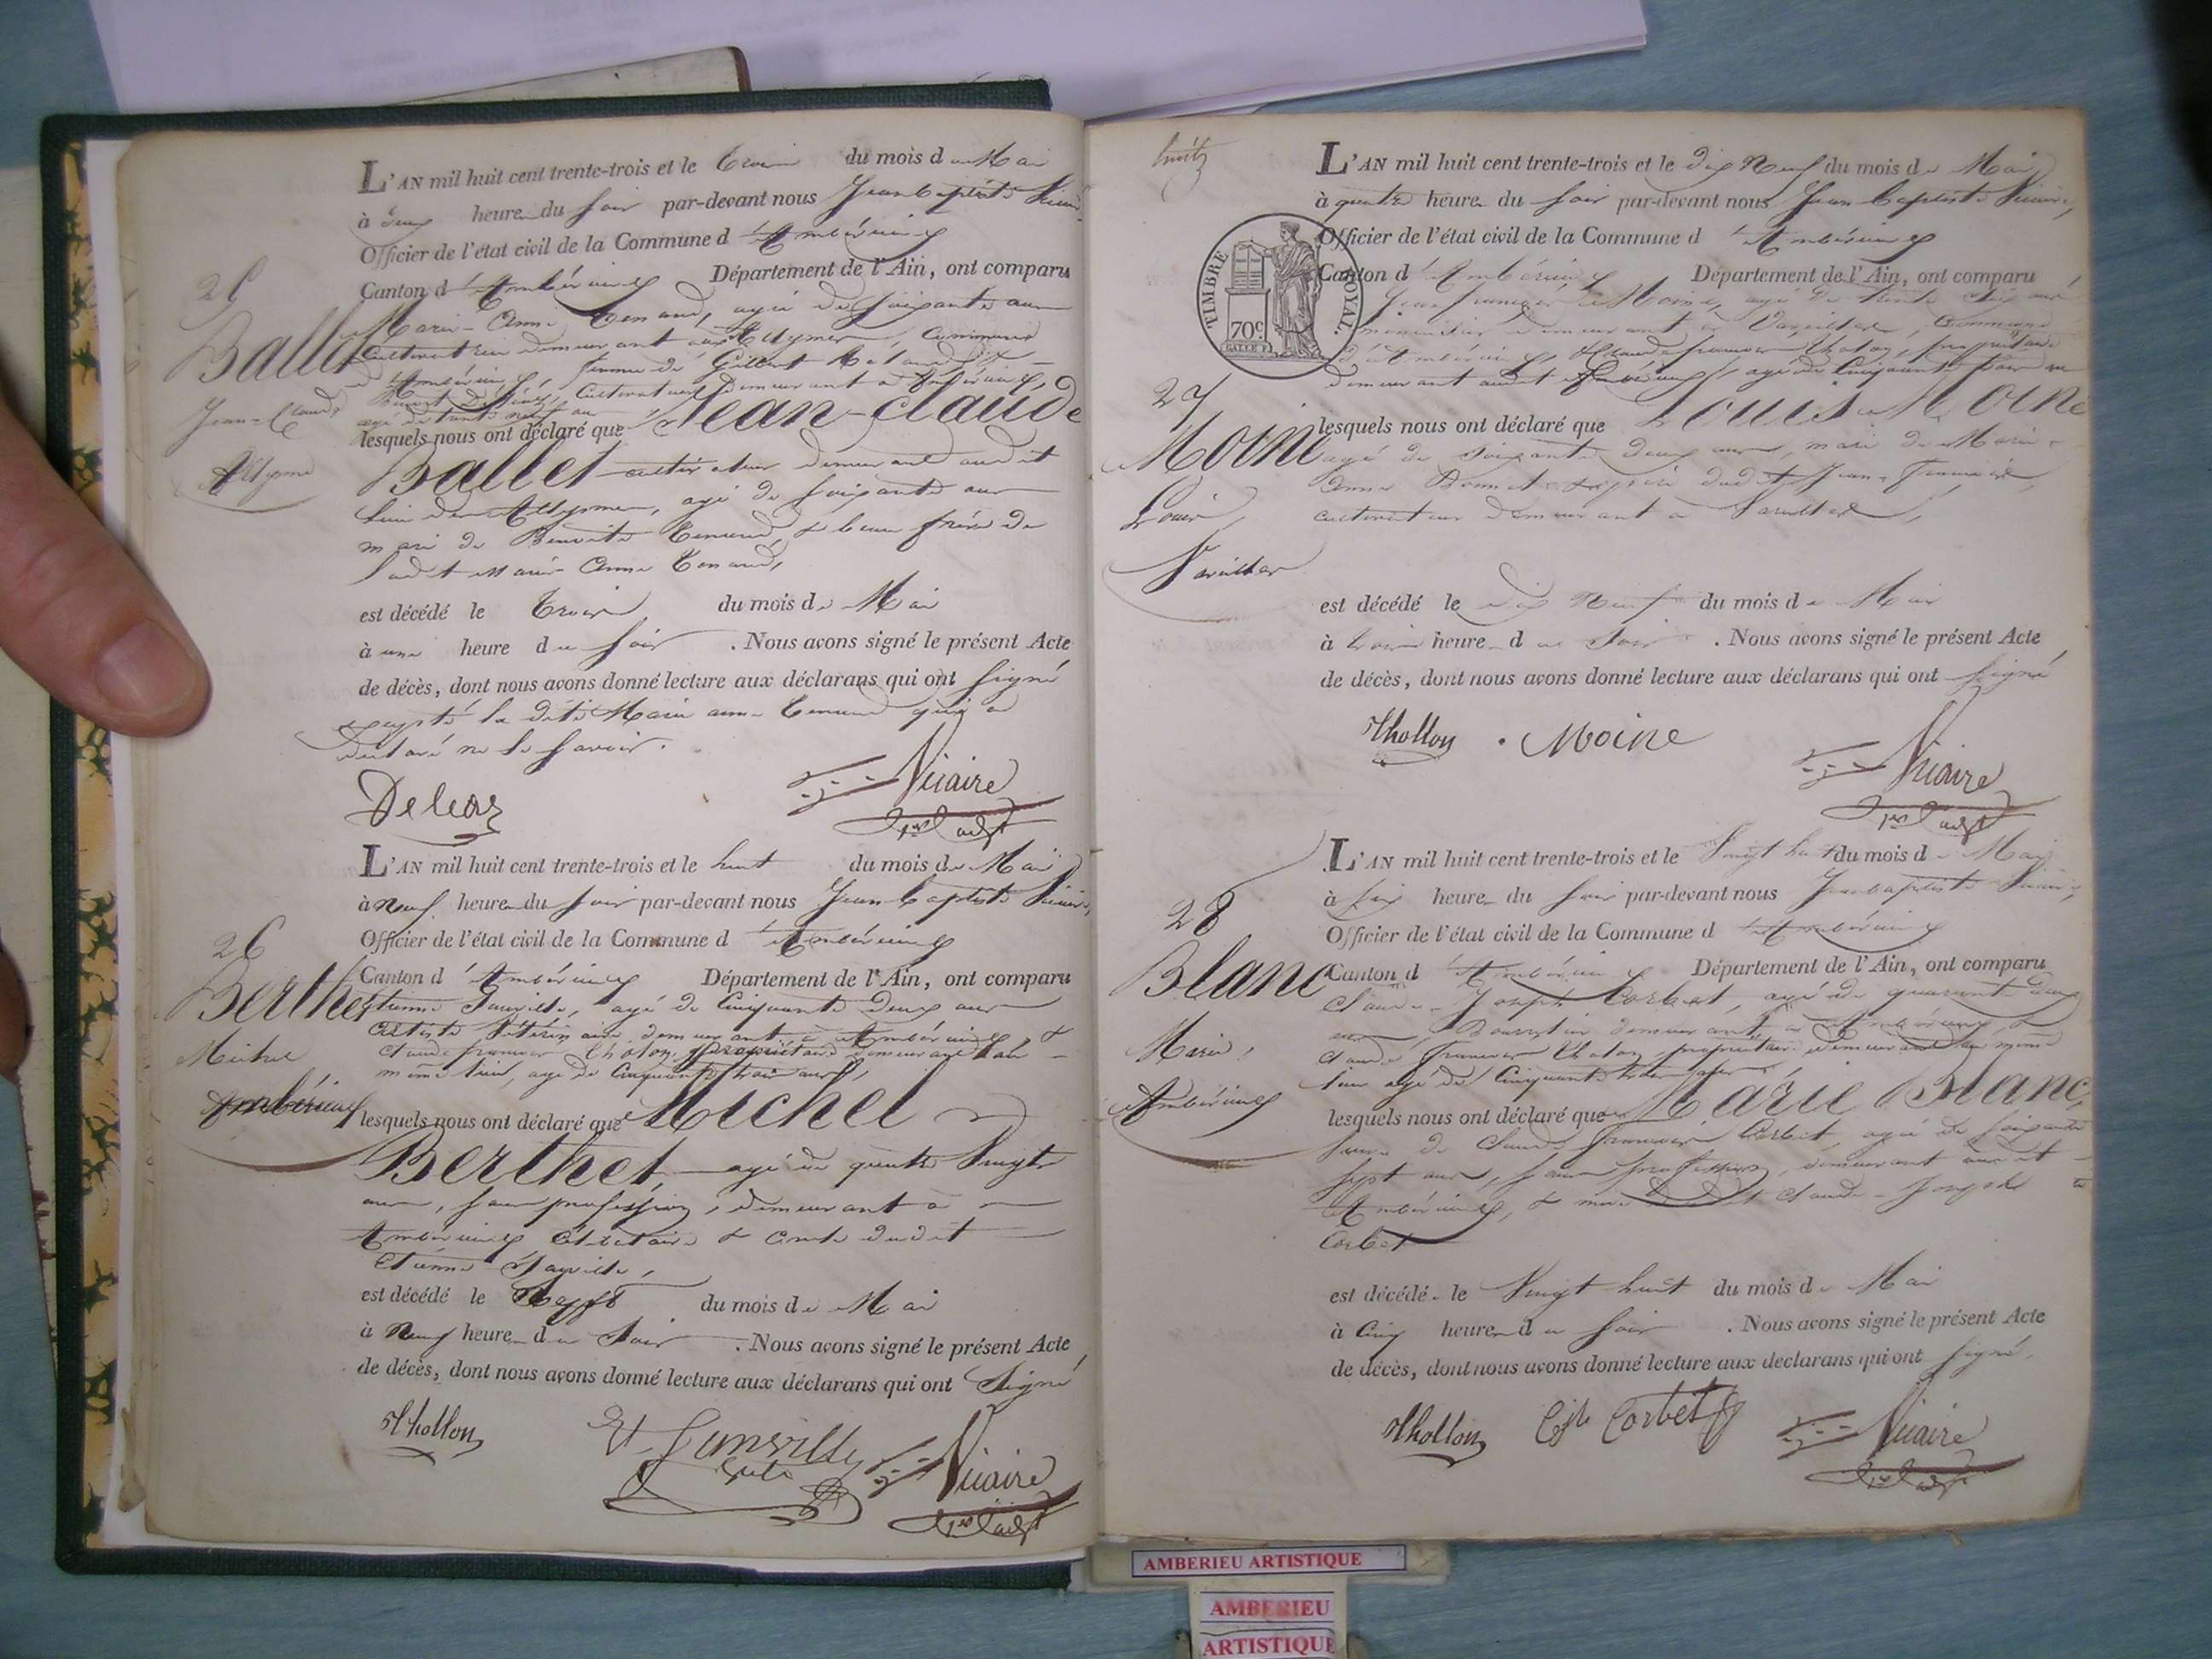 L'AN mil huit cent trente-trois et le trois du mois de Mai
à deux heures du soir par-devant nous Jean Baptiste Vicaire
Officier de l'état civil de la Commune d'Ambérieux
Canton d'Ambérieux Département de l'Ain, ont comparu
25
Marie-Anne Tenand, agée de soixante ans
Ballet
cultivatrice demeurant aux Allymes, Commune
d'Ambérieux, femme de Gilbert
cultivateur demeurant à Ambérieux,
Jean-Claude
agé de trente neuf ans
lesquels nous ont déclaré que Jean-Claude
Allyme
Ballet cultivateur demeurant audit
lieu des Allymes, agé de soixante ans
mari de Benoite Tenand, & beau frère de
ladt Marie Anne Tenand,
est décédé le trois du mois de Mai
à une heure du soir . Nous avons signé le présent Acte
de décès, dont nous avons donné lecture aux déclarans qui ont signé
excepté la dite Marie anne Tenand qui a
déclaré ne le savoir.
Vicaire
L'AN mil huit cent trente-trois et le huit du mois de Mai
à neuf heures du soir par-devant nous Jean Baptiste Vicaire,
Officier de l'état civil de la Commune d'Ambérieux
26
Canton d'Ambérieux Département de l'Ain, ont comparu
Berthet
Etienne agé de Cinquante deux ans
artiste vétérinaire demeurant à Ambérieux, &
Michel
Claude françois Tholon, propriétaire demeurant au
même lieu, agé de Cinquante trois ans,
Ambérieux
lesquels nous ont déclaré que Michel
Berthet, agé de quatre vingts
ans, sans profession, demeurant à
Ambérieux Célibataire & oncle dudit
Etienne
est décédé le sept du mois de Mai
à neuf heures du soir . Nous avons signé le présent Acte
de décès, dont nous avons donné lecture aux déclarans qui ont signé
Thollon
Vicaire
L'AN mil huit cent trente-trois et le dix neuf du mois de Mai
à quatre heures du soir par-devant nous Jean Baptiste Vicaire,
Officier de l'état civil de la Commune d'Ambérieux
Canton d'Ambérieux Département de l'Ain, ont comparu
TIMBRE ROYAL.
70c
Jean françois Moine, agé de trente six ans
menuisier demeurant à Vareilles Commune
d'Ambérieux, & Claude françois Tholon, propriétaire
demeurant audit Ambérieux, agé de Cinquante trois ans
27
lesquels nous ont déclaré que Louis Moine
Moine
agé de soixante deux ans, mari de Marie
Anne Bonnet & père dudt Jean-françois,
Louis,
cultivateur demeurant à Vareilles,
Vareilles
est décédé le dix neuf du mois de Mai
à trois heures du soir . Nous avons signé le présent Acte
de décès, dont nous avons donné lecture aux déclarans qui ont signé
Thollon Moine
Vicaire
L'AN mil huit cent trente-trois et le vingt huit du mois de Mai
à six heures du soir par-devant nous Jean baptiste Vicaire,
28
Officier de l'état civil de la Commune d'Ambérieux
Blanc
Canton d'Ambérieux Département de l'Ain, ont comparu
Claude-Joseph Corbet, agé de quarante deux
ans, Bourrelier demeurant à Ambérieux, &
Marie,
Claude François Tholon, propriétaire demeurant au même
lieu agé de Cinquante trois ans
Ambérieux
lesquels nous ont déclaré que Marie Blanc,
veuve de Claude françois Corbet, agée de soixante
sept ans, sans profession, demeurant audit
Ambérieux, & mère dudt Claude-Joseph
Corbet
est décédée le vingt huit du mois de Mai
à Cinq heures du soir . Nous avons signé le présent Acte
de décès, dont nous avons donné lecture aux declarans qui ont signé.
Thollon Corbet
Vicaire
AMBERIEU ARTISTIQUE
AMBERIEU
ARTISTIQUE